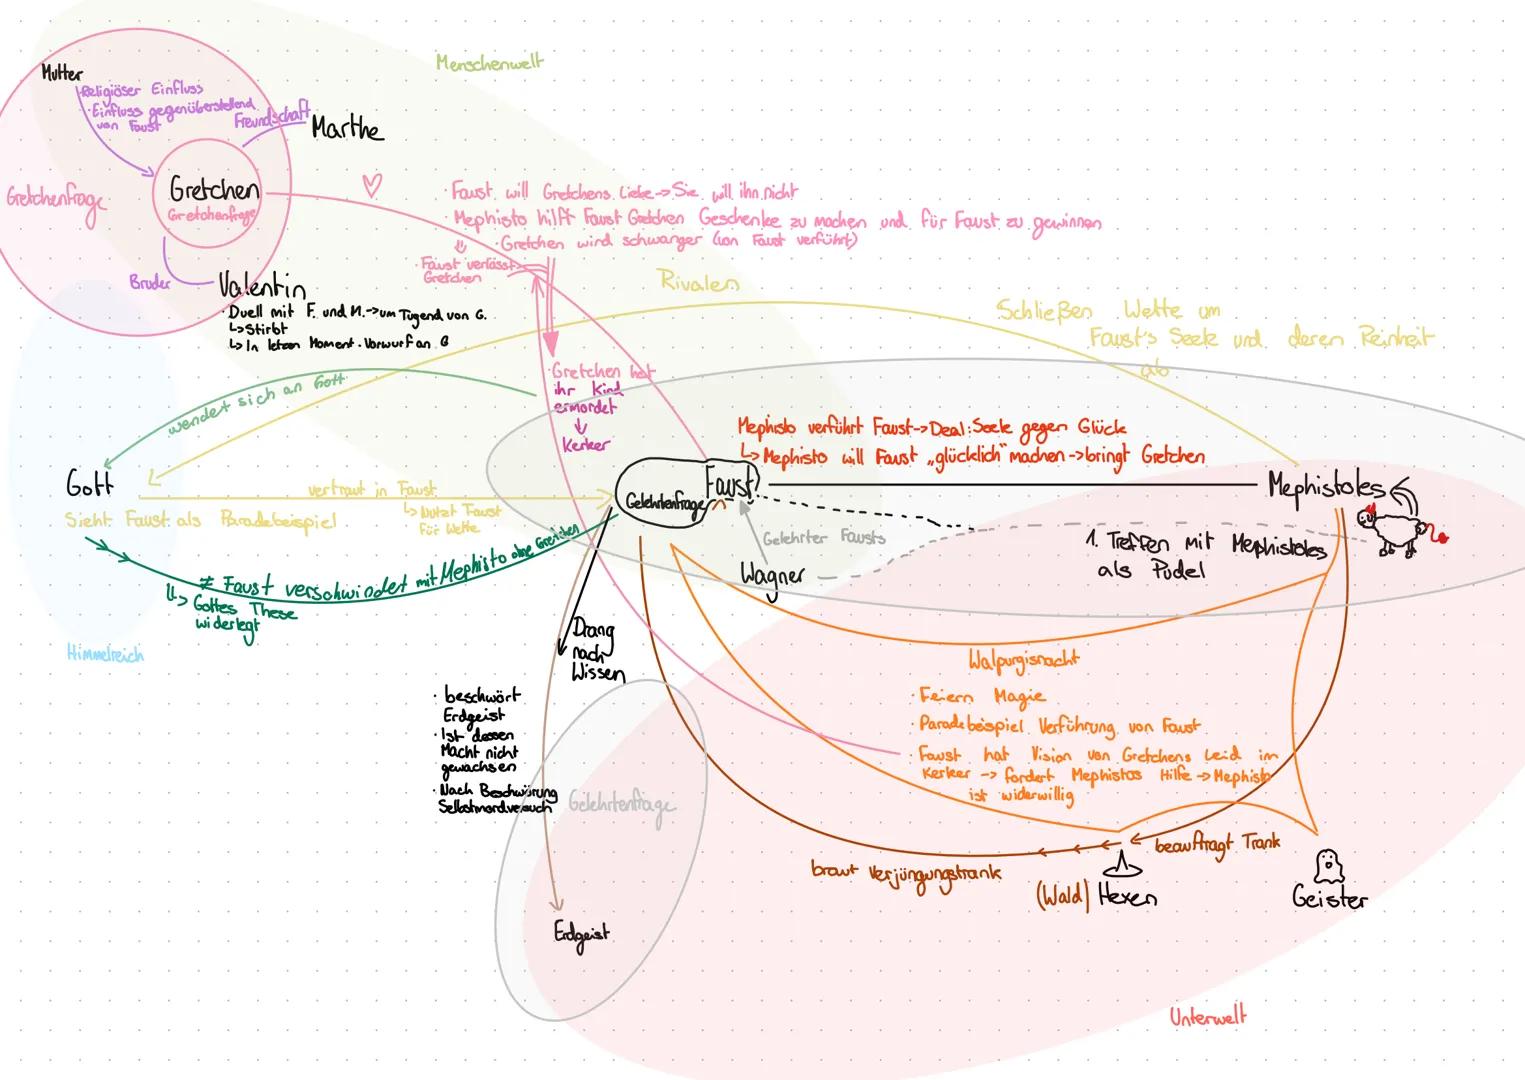 Menschenwelt
Mutter
Religiöser Einfluss
· Einfluss gegenüberstellend
von Faust
Freundschaft
Marthe
Gretchenfrage
Gretchen
Gretchenfrage
Bruder
Valentin
· Duell mit F. und M.->um Tugend von G.
↳Stirbt
↳In letzen Moment. Vorwurf an G
· Faust will Gretchens Liebe -> Sie will ihn nicht
· Mephisto hilft Faust Gretchen Geschenke zu machen und für Faust zu gewinnen
· Gretchen wird schwanger (von Faust verführt)
· Faust verlässt
Gretchen
Rivalen
Schließen Wette um
Faust's Seele und deren Reinheit
ab
· Gretchen hat
ihr Kind
ermordet
Kerker
wendet sich an Gott
Mephisto verführt Faust->Deal: Seele gegen Glück
↳Mephisto will Faust „glücklich" machen->bringt Gretchen
Gott
vertraut in Faust
↳Nutzt Faust
für Wette
Sieht Faust als Paradebeispiel
Gelehrtenfrage
Faust
Mephistoles
Gelehrter Fausts
Wagner
1. Treffen mit Mephistoles
als Pudel
≠ Faust verschwindet mit Mephisto ohne Gretchen
↳ Gottes These
widerlegt
Himmelreich
Drang
nach
Wissen
· beschwört
Erdgeist
· Ist dessen
Macht nicht
gewachsen
· Nach Beschwörung
Selbstmordversuch
Gelehrtenfrage
Erdgeist
Walpurgisnacht
· Feiern Magie
· Paradebeispiel Verführung von Faust
· Faust hat Vision von Gretchens Leid im
Kerker -> fordert Mephistos Hilfe -> Mephisto
ist widerwillig
beauftragt Trank
braut Verjüngungstrank
(Wald) Hexen
Geister
Unterwelt